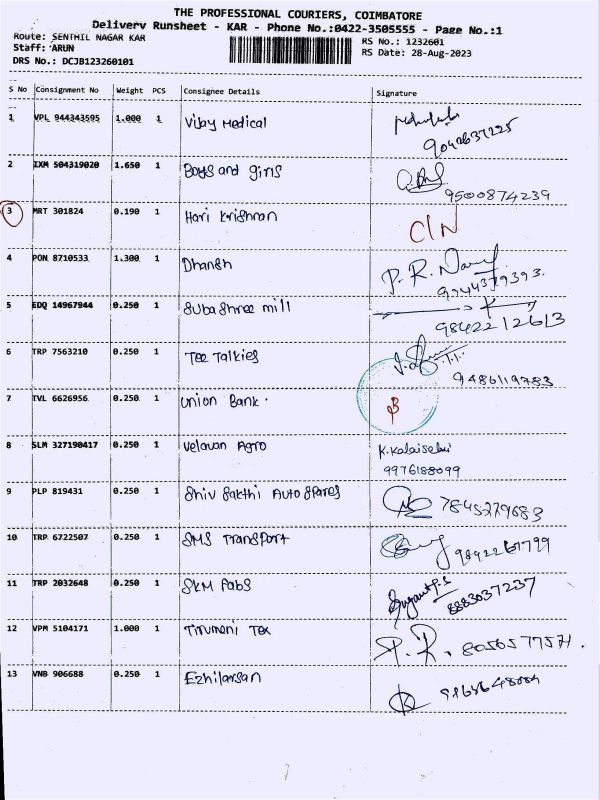 THE PROFESSIONAL COURIERS, COIMBATORE
Delivery Runsheet - KAR - Phone No.:0422-3505555 - Page No.:1
Route: SENTHIL NAGAR KAR
RS No.: 1232601
Staff: ARUN
RS Date: 28-Aug-2023
DRS No.: DCJB123260101
S No Consignment No Weight PCS Consignee Details Signature
1 VPL 944343595 1.000 1 Vijay Medical
9042637225
2 IXM 504319020 1.650 1 Boys and girls
9500874239
3 MRT 301824 0.190 1 Hari Krishnan C/N
4 PON 8710533 1.300 1 Dhansh P. R.
9944379393.
5 EDQ 14967944 0.250 1 Suba Shree mill
9842212613
6 TRP 7563210 0.250 1 Tee Talkies
9486119783
7 TVL 6626956 0.250 1 Union Bank.
8 SLM 327190417 0.250 1 Velavan Agro K. Kalaiselvi
9976188099
9 PLP 819431 0.250 1 Shiv Sakthi Auto Spares 7845279683
10 TRP 6722507 0.250 1 SMS Transport 9842261799
11 TRP 2032648 0.250 1 SKM Fabs
8883037237
12 VPM 5104171 1.000 1 Tirumani Tex P. R. 8056577571.
13 VNB 906688 0.250 1 Ezhilarsan